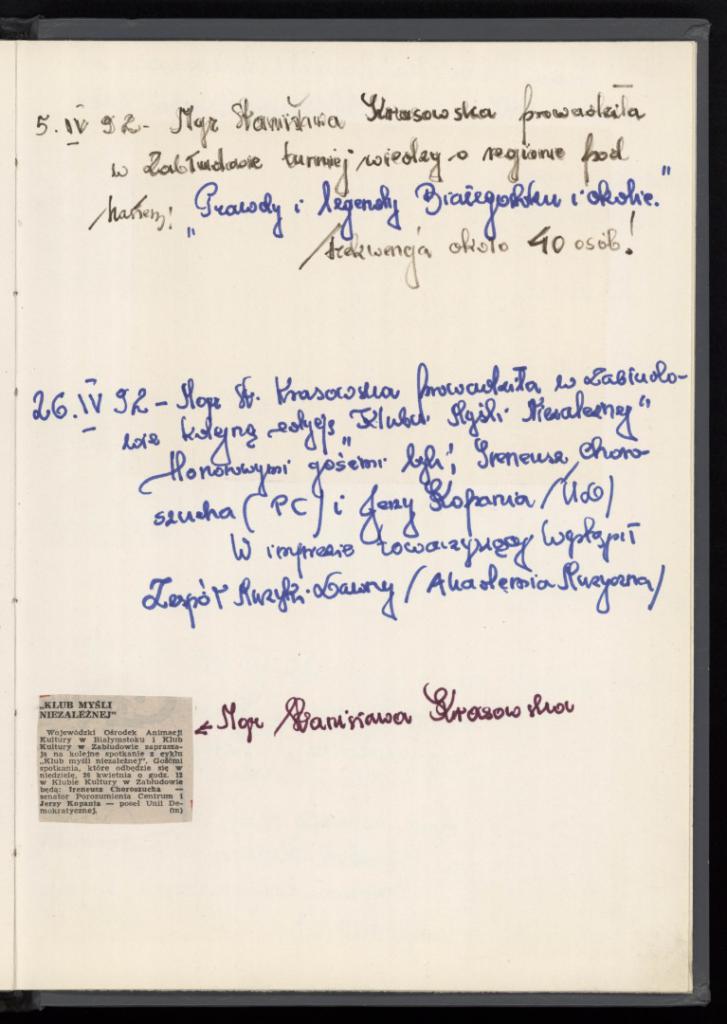 5. IV 92 - Mgr Stanisława Krasowska prowadziła
w Zabłudowie turniej wiedzy o regionie pod
hasłem: „Prawdy i legendy Białegostoku i okolic."
frekwencja około 40 osób!
26. IV 92 - Mgr St. Krasowska prowadziła w Zabłudo-
wie kolejną edycję „Klubu Myśli Niezależnej"
Honorowymi gośćmi byli: Ireneusz Choro-
szucha (PC) i Jerzy Kopania /UD/
W imprezie towarzyszącej wystąpił
Zespół Muzyki Dawnej /Akademia Muzyczna/
„KLUB MYŚLI
NIEZALEŻNEJ"
Wojewódzki Ośrodek Animacji
Kultury w Białymstoku i Klub
Kultury w Zabłudowie zaprasza-
ją na kolejne spotkanie z cyklu
„Klub myśli niezależnej". Gośćmi
spotkania, które odbędzie się w
niedzielę, 26 kwietnia o godz. 12
w Klubie Kultury w Zabłudowie
będą: Ireneusz Choroszucha —
senator Porozumienia Centrum i
Jerzy Kopania — poseł Unii De-
mokratycznej. (m)
← Mgr Stanisława Krasowska